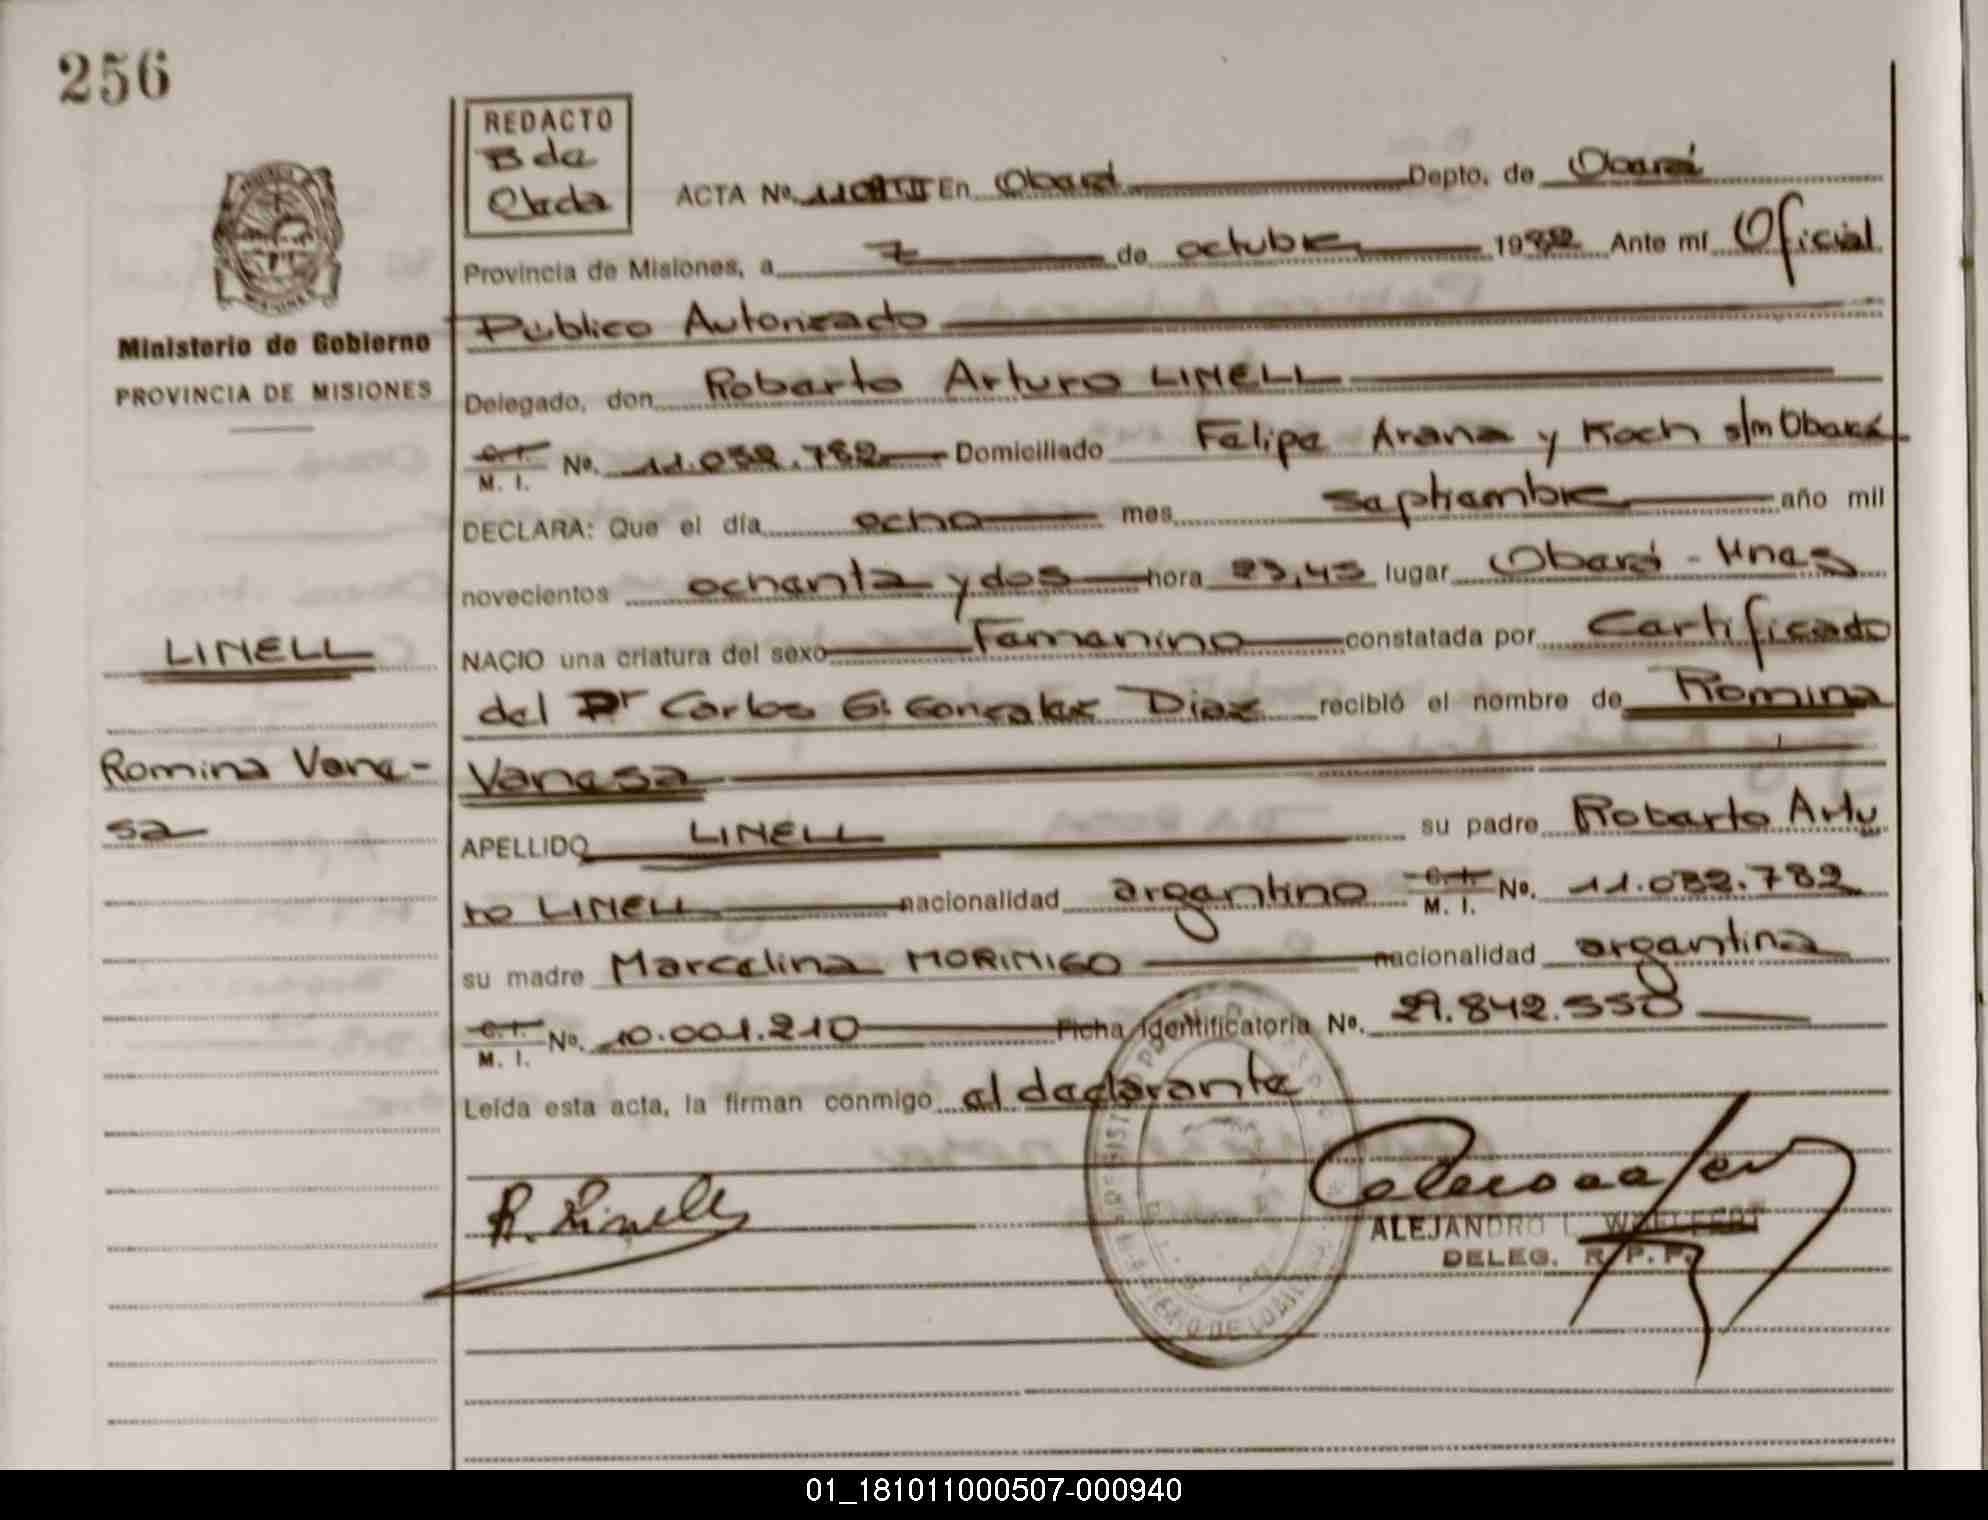 256
REDACTO
B de
Olada
ACTA Nº En Oberá Depto. de Oberá
Provincia de Misiones, a 7 de octubre 1982 Ante mí Oficial
Público Autorizado
Ministerio de Gobierno
PROVINCIA DE MISIONES
Delegado, don Roberto Arturo LINELL
C.I.
M. I. Nº. 11.032.782 Domiciliado Felipe Arana y Koch s/m Oberá
DECLARA: Que el día ocho mes septiembre año mil
novecientos ochenta y dos hora 23,45 lugar Oberá - Mnes
LINELL
NACIO una criatura del sexo Femenino constatada por Certificado
del Dr Carlos G. Gonzalez Diaz recibió el nombre de Romina
Romina Vane-
sa
Vanesa
APELLIDO LINELL su padre Roberto Artu
ro LINELL nacionalidad argentino C.I.
M. I. Nº. 11.032.782
su madre Marcelina MORINIGO nacionalidad argentina
C.I.
M. I. Nº. 10.001.210 Ficha Identificatoria Nº. 29.842.550
Leída esta acta, la firman conmigo el declarante
R. Linell
ALEJANDRO L.
DELEG. R. P. P.
01_181011000507-000940